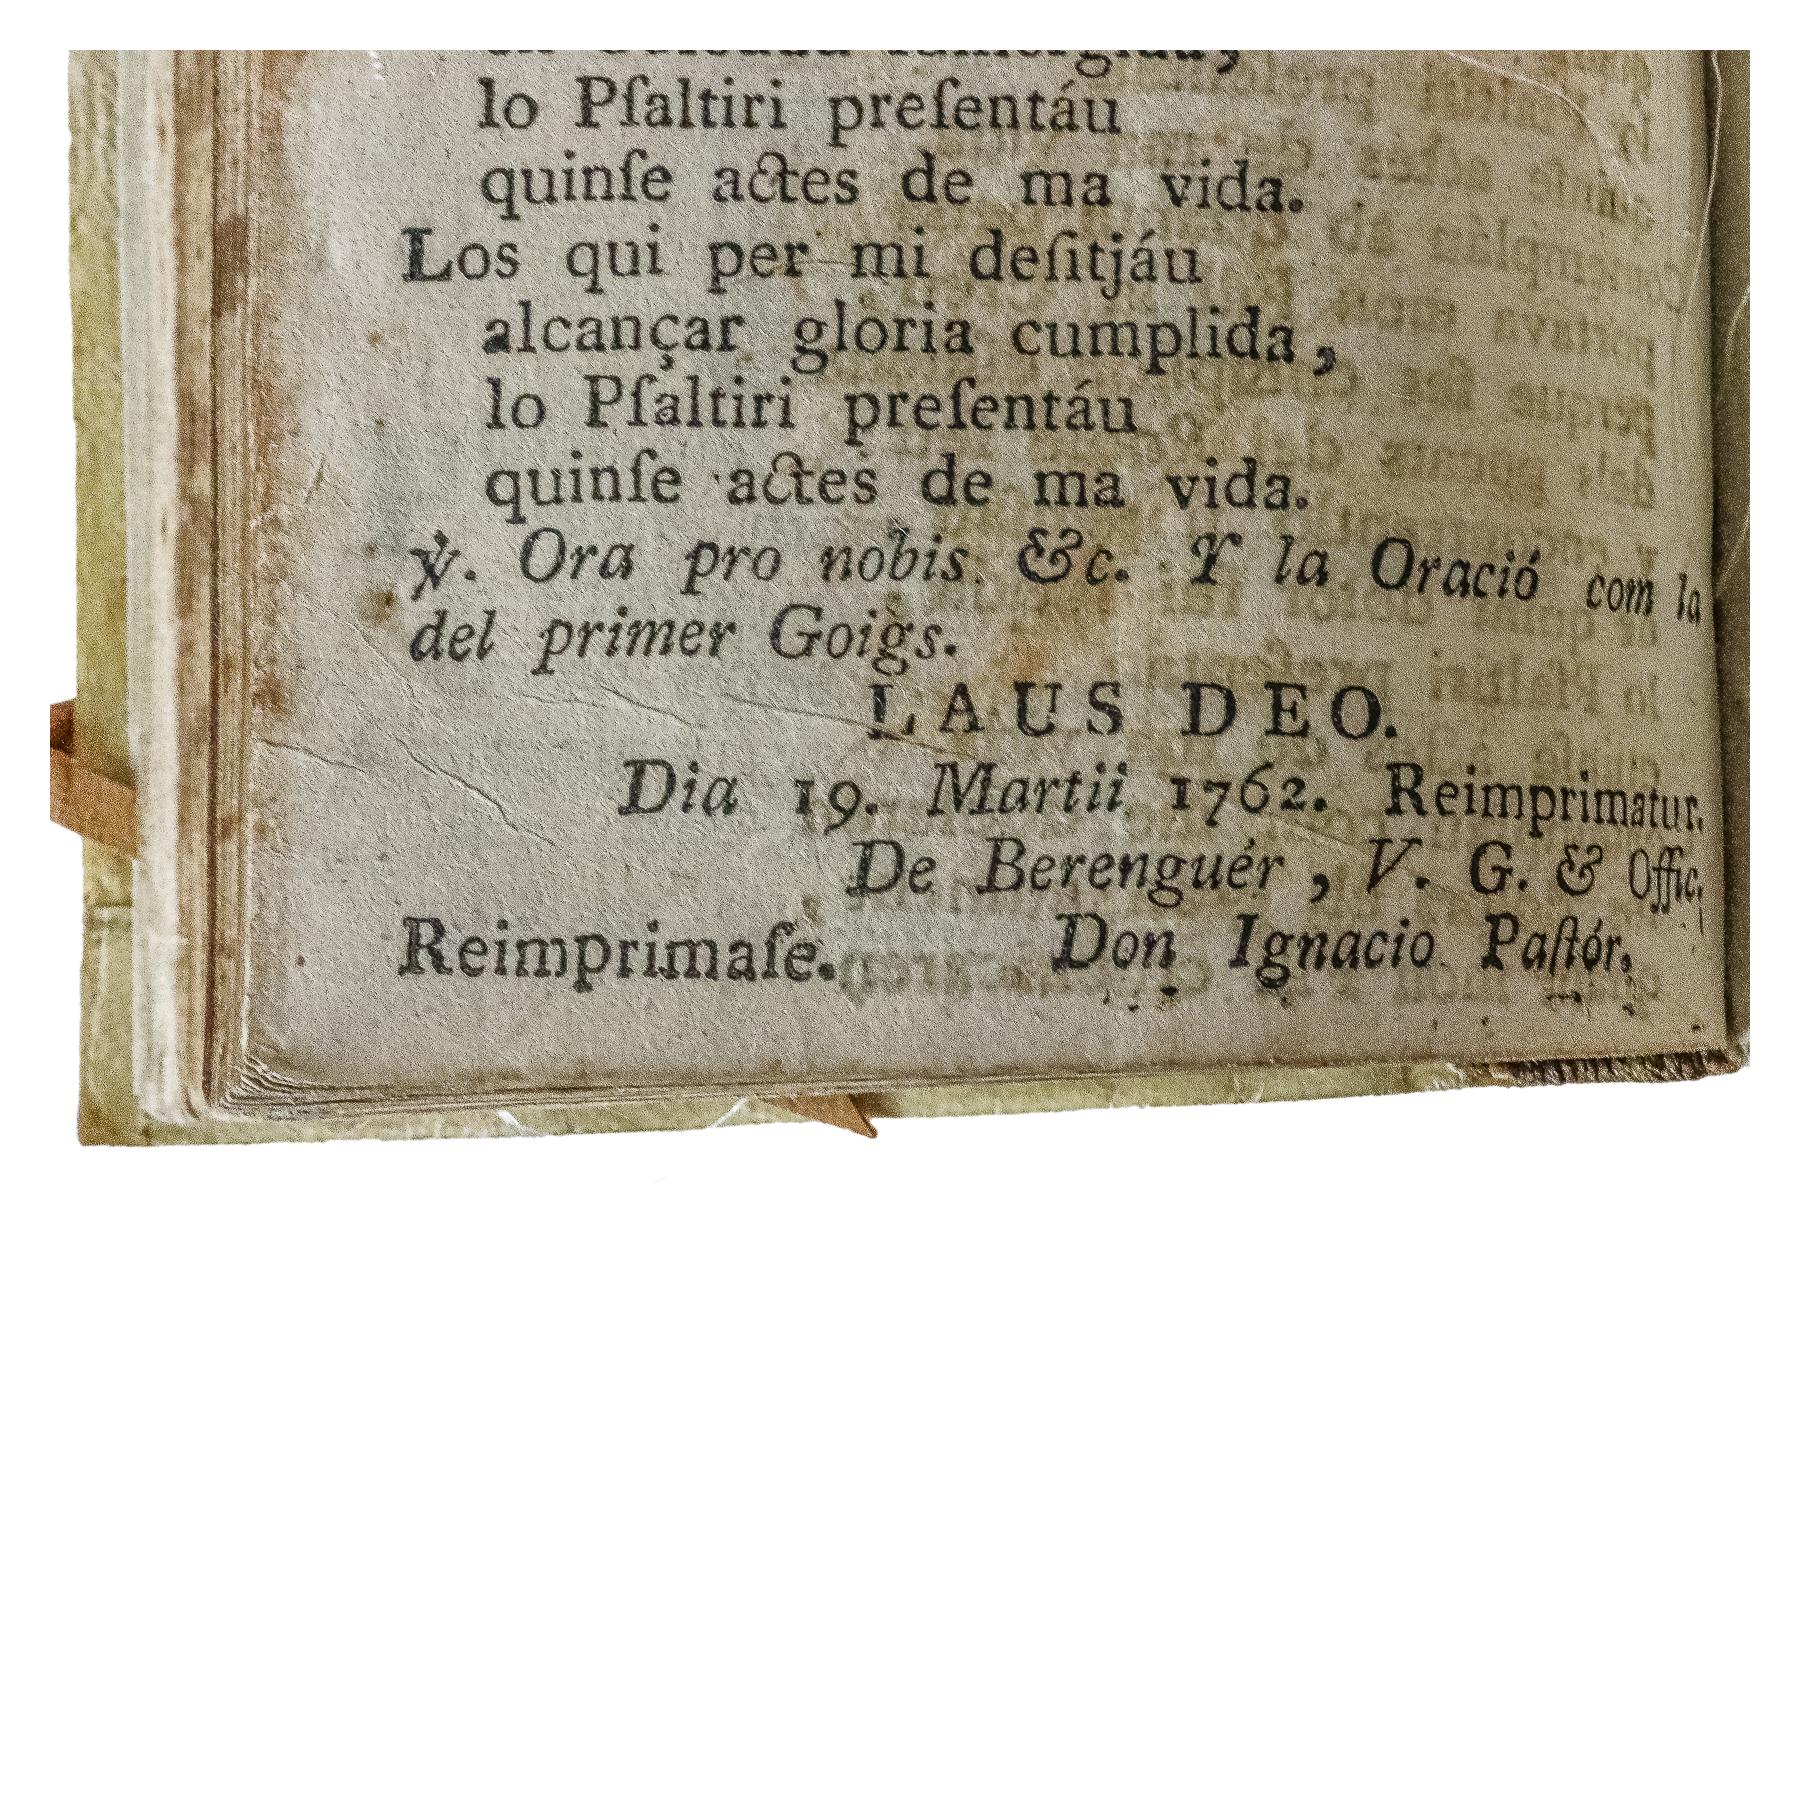 lo Pſaltiri preſentáu
quinſe actes de ma vida.
Los qui per mi deſitjáu
alcançar gloria cumplida,
lo Pſaltiri preſentáu
quinſe actes de ma vida.
℣. Ora pro nobis &c. Y la Oració com la
del primer Goigs.
LAUS DEO.
Dia 19. Martii 1762. Reimprimatur.
De Berenguér, V. G. & Offic.
Reimprimaſe. Don Ignacio Paſtór.